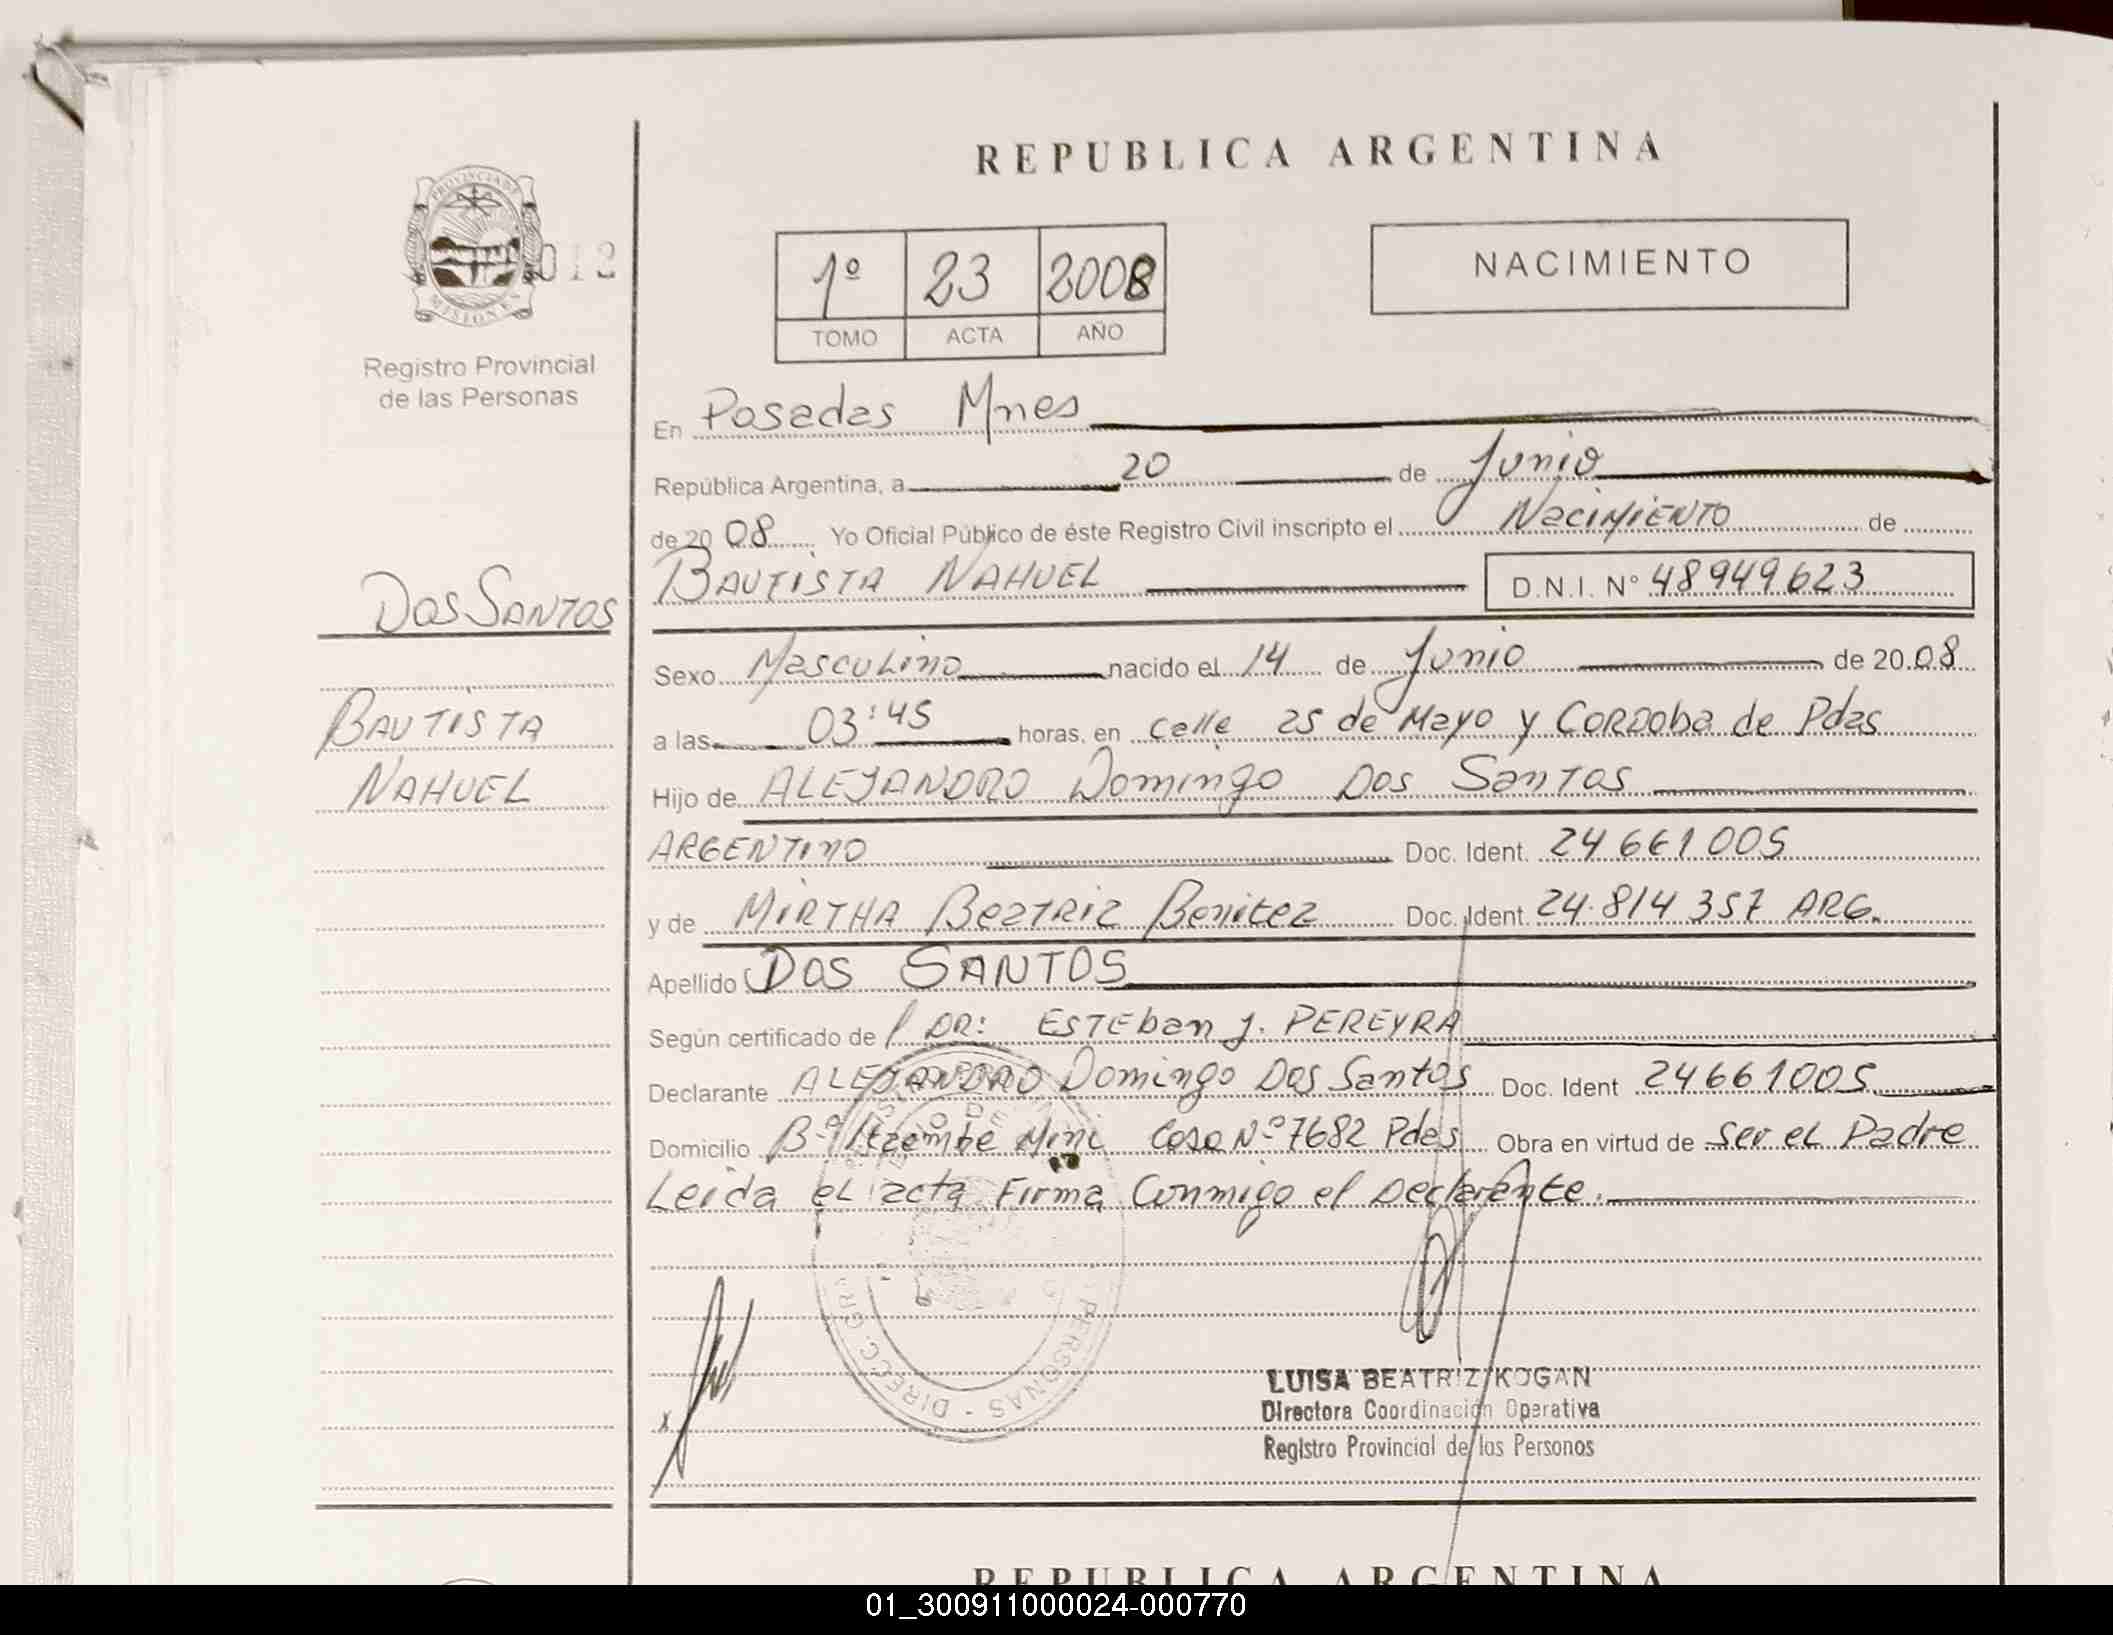 REPUBLICA ARGENTINA
PROVINCIA DE
MISIONES
012
1º 23 2008
TOMO ACTA AÑO
NACIMIENTO
Registro Provincial
de las Personas
En Posadas Mnes
República Argentina, a 20 de Junio
de 20 08 Yo Oficial Público de éste Registro Civil inscripto el Nacimiento de
BAUTISTA NAHUEL D.N.I. Nº 48949623
DOS SANTOS
BAUTISTA
NAHUEL
Sexo Masculino nacido el 14 de Junio de 20 08
a las 03:45 horas, en Calle 25 de Mayo y CORDOBA de Pdas
Hijo de ALEJANDRO Domingo Dos Santos
ARGENTINO Doc. Ident. 24 661 005
y de MIRTHA Beatriz Benitez Doc. Ident. 24.814 357 ARG.
Apellido DOS SANTOS
Según certificado de DR: ESTEban J. PEREYRA
Declarante ALEJANDRO Domingo Dos Santos Doc. Ident 24661005
Domicilio Bº Itaembe Mini Casa Nº 7682 Pdas Obra en virtud de ser el Padre
Leida el acta Firma Conmigo el Declarante.
PERSONAS - DIRECC. GRAL
x
LUISA BEATRIZ KOGAN
Directora Coordinación Operativa
Registro Provincial de las Personas
REPUBLICA ARGENTINA
01_300911000024-000770